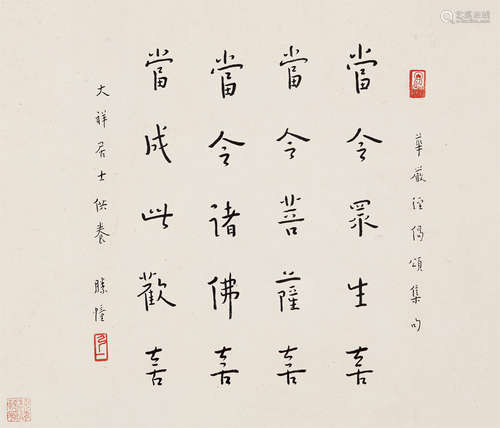 華嚴經偈頌集句
當令眾生喜
當令菩薩喜
當令諸佛喜
當成此歡喜
大祥居士供養 勝幢